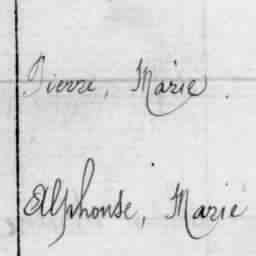 Pierre, Marie.
Alphonse, Marie